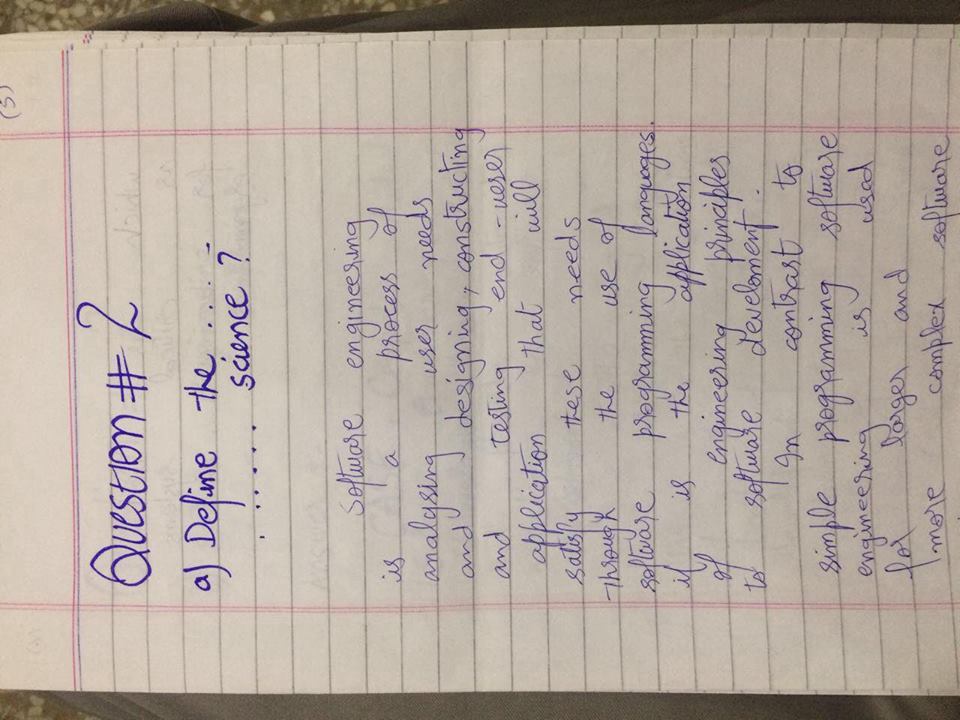 (5)
QUESTION # 2
a) Define the .. .. -
. ..... science ?
Software engineering
is a process of
analysing user needs
and designing, constructing
and testing end -ueser
application that will
satisfy these needs
through the use of
software programming languages.
if is the application
of engineering principles
to software develoment.
In contrast to
simple programming software
engineering is used
for larger and
more complex software